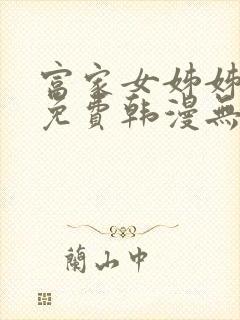 富家女姊姊
免費韩漫無
蘭山中